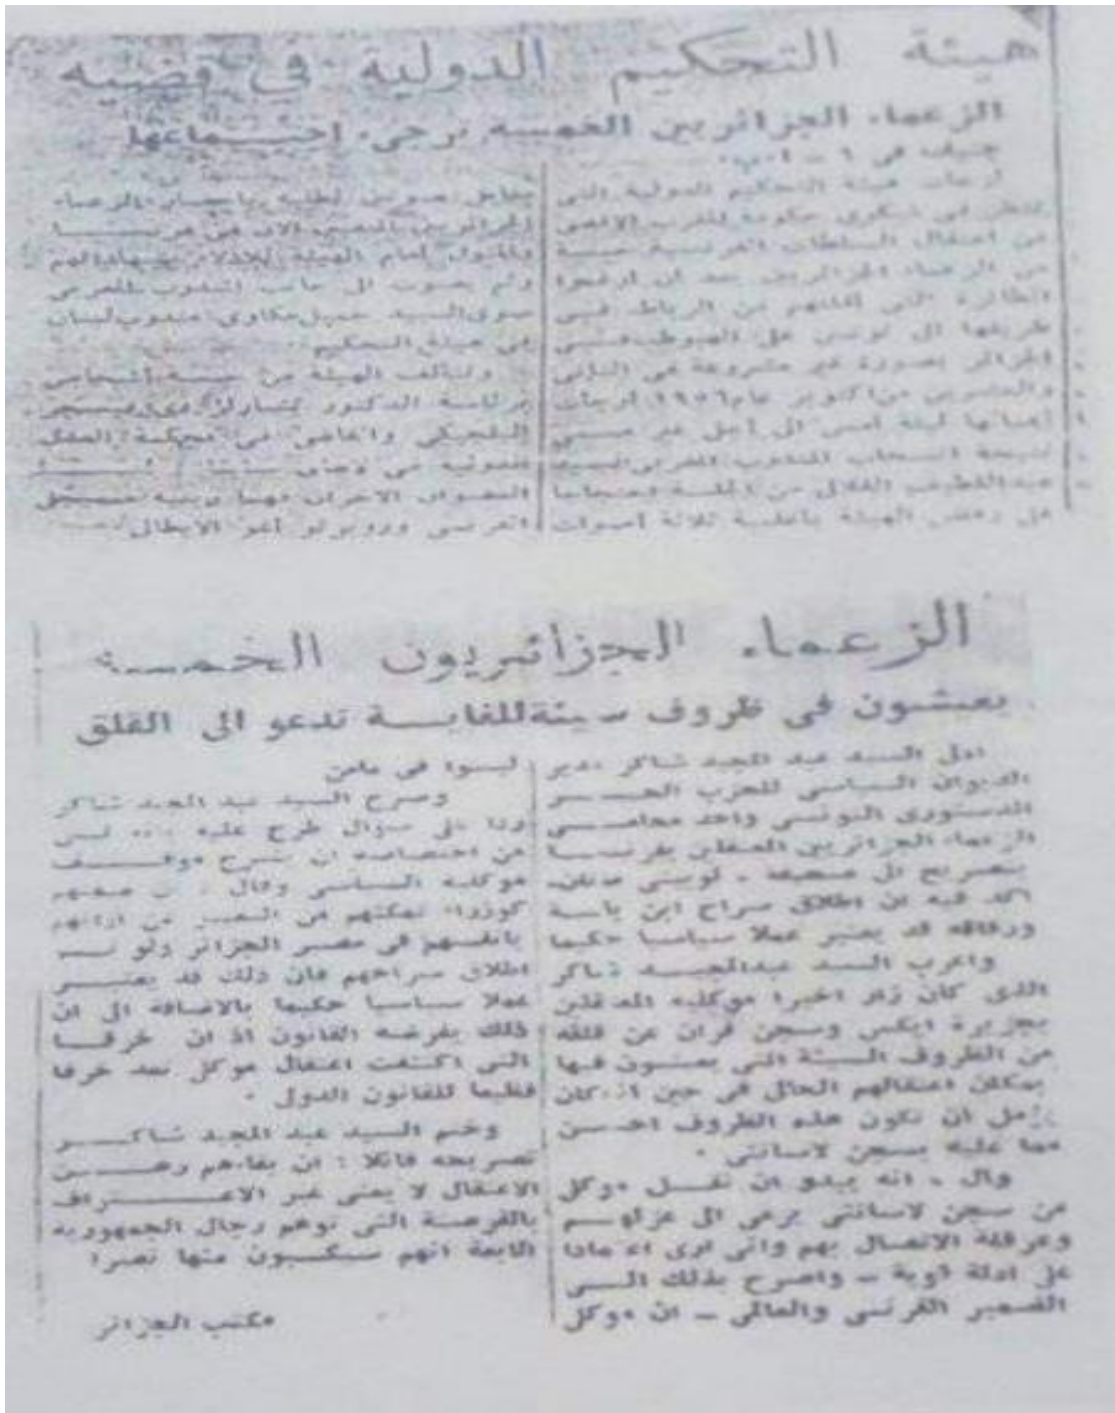 هيئة التحكيم الدولية في قضية
الزعماء الجزائريين الخمسة ترجىء اجتماعها
جنيف في
ارجأت هيئة التحكيم الدولية التي
تنظر في شكوى حكومة المغرب الاقصى
من اعتقال السلطات الفرنسية خمسة
من الزعماء الجزائريين بعد ان ارغموا
الطائرة التي اقلتهم من الرباط في
طريقها الى تونس على الهبوط في
الجزائر بصورة غير مشروعة في الثاني
والعشرين من اكتوبر عام ١٩٥٦ ارجأت
ليلة امس الى أجل غير مسمى
نتيجة انسحاب المندوب المغربي السيد
من الجلسة احتجاجا
على رفض الهيئة بأغلبية ثلاثة أصوات
مقابل صوتين لطلبه باحضار الزعماء
الجزائريين الى فرنسا
والمثول أمام الهيئة للادلاء بشهاداتهم
ولم يصوت الى جانب المندوب المغربي
سوى السيد جميل مكاوي مندوب لبنان
في هيئة التحكيم
وتتألف الهيئة من خمسة أشخاص
برئاسة الدكتور شارل دي
البلجيكي والقاضي في محكمة العدل
الدولية
العضوان الاخران فهما رينيه
الفرنسي وروبرتو آغو الايطالي
الزعماء الجزائريون الخمسة
يعيشون في ظروف سيئة للغاية تدعو الى القلق
ادلى السيد عبد المجيد شاكر مدير
الديوان السياسي للحزب الحر
الدستوري التونسي واحد محامي
الزعماء الجزائريين المعتقلين بفرنسا
بتصريح الى صحيفة - لوبيتي
اكد فيه ان اطلاق سراح ابن بلة
ورفاقه قد يعتبر عملا سياسيا حكيما
واعرب السيد عبد المجيد شاكر
الذي كان زار اخيرا موكليه المعتقلين
بجزيرة ايكس وسجن فران عن قلقه
من الظروف السيئة التي يعيشون فيها
بمكان اعتقالهم الحالي في حين انه كان
يأمل ان تكون هذه الظروف احسن
مما عليه بسجن لاسانتي .
وقال - انه يبدو ان نقل موكلي
من سجن لاسانتي يرمي الى عزلهم
وعرقلة الاتصال بهم واني ارى اعتمادا
على ادلة قوية - واصرح بذلك الى
الضمير الفرنسي والعالمي - ان موكلي
ليسوا في مأمن
وصرح السيد عبد المجيد شاكر
ردا على سؤال طرح عليه ... ليس
من اختصاصه ان يشرح موقف
موكليه السياسي وقال
كوزراء تمكنهم من التعبير عن ارائهم
بانفسهم في مصير الجزائر ولو تم
اطلاق سراحهم فان ذلك قد يعتبر
عملا سياسيا حكيما بالاضافة الى ان
ذلك يفرضه القانون اذ ان
التي اكتنفت اعتقال موكلي تعد خرقا
فظيعا للقانون الدولي .
وختم السيد عبد المجيد شاكر
تصريحه قائلا : ان بقاءهم رهن
الاعتقال لا يعني غير الاعتراف
بالفرصة التي توهم رجال الجمهورية
الرابعة انهم سيكسبون منها نصرا
مكتب الجزائر